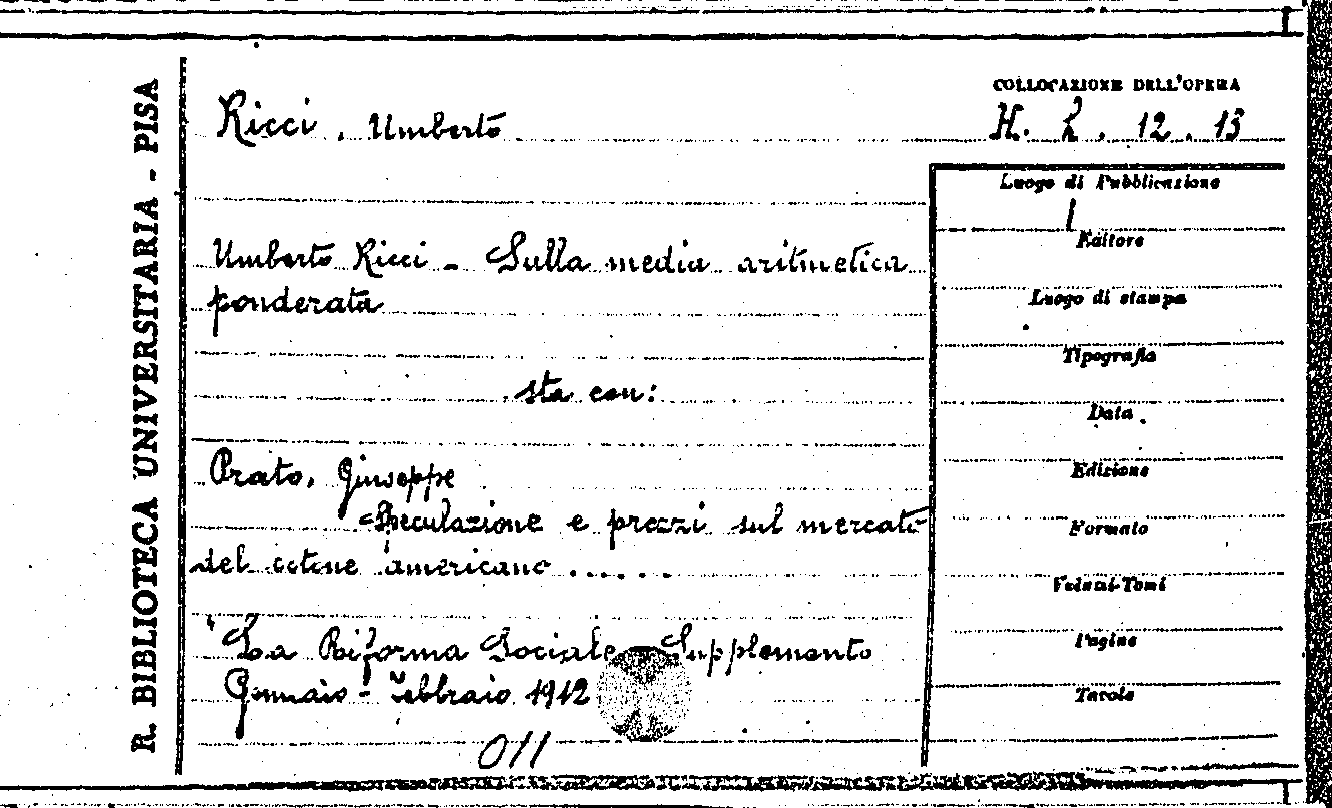 R. BIBLIOTECA UNIVERSITARIA - PISA
COLLOCAZIONE DELL'OPERA
Ricci, Umberto
H. 2. 12. 13
Umberto Ricci - Sulla media aritmetica
ponderata
sta con:
Prato, Giuseppe
Speculazione e prezzi sul mercato
del cotone americano ......
"La Riforma Sociale - Supplemento
Gennaio - Febbraio 1912
011
Luogo di Pubblicazione
Editore
Luogo di stampa
Tipografia
Data
Edizione
Formato
Volumi-Tomi
Pagine
Tavole